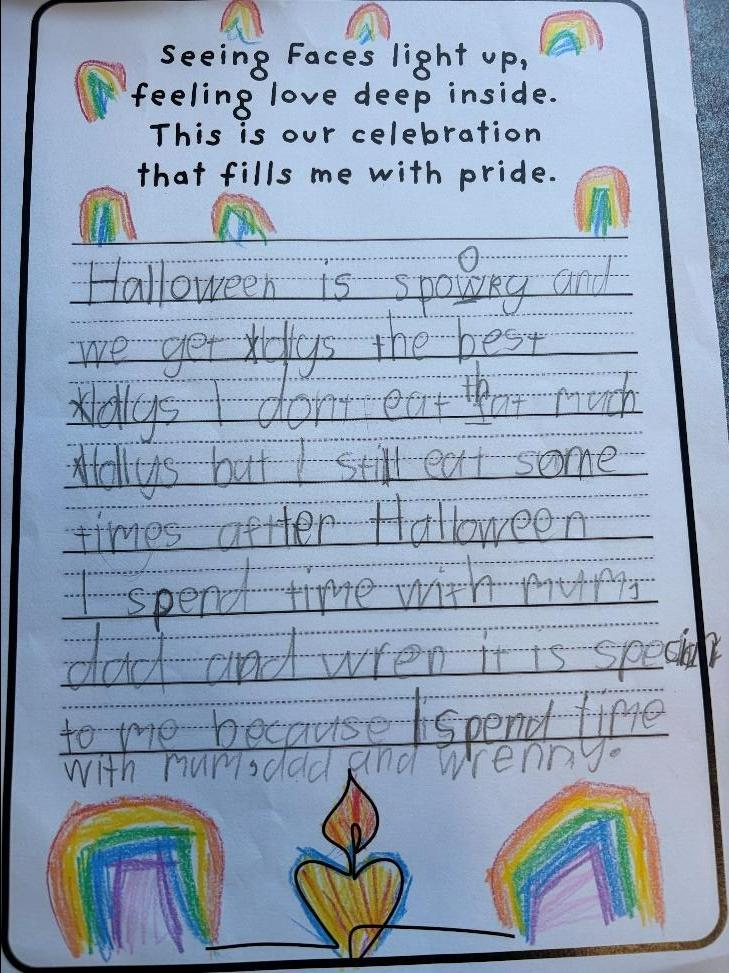 Seeing Faces light up,
feeling love deep inside.
This is our celebration
that fills me with pride.
Halloween is spowky and
we get the best
I dont eat that much
but I still eat some
times after Halloween
I spend time with mum,
dad and wren it is special
to me because I spend time
with mum, dad and wrenny.